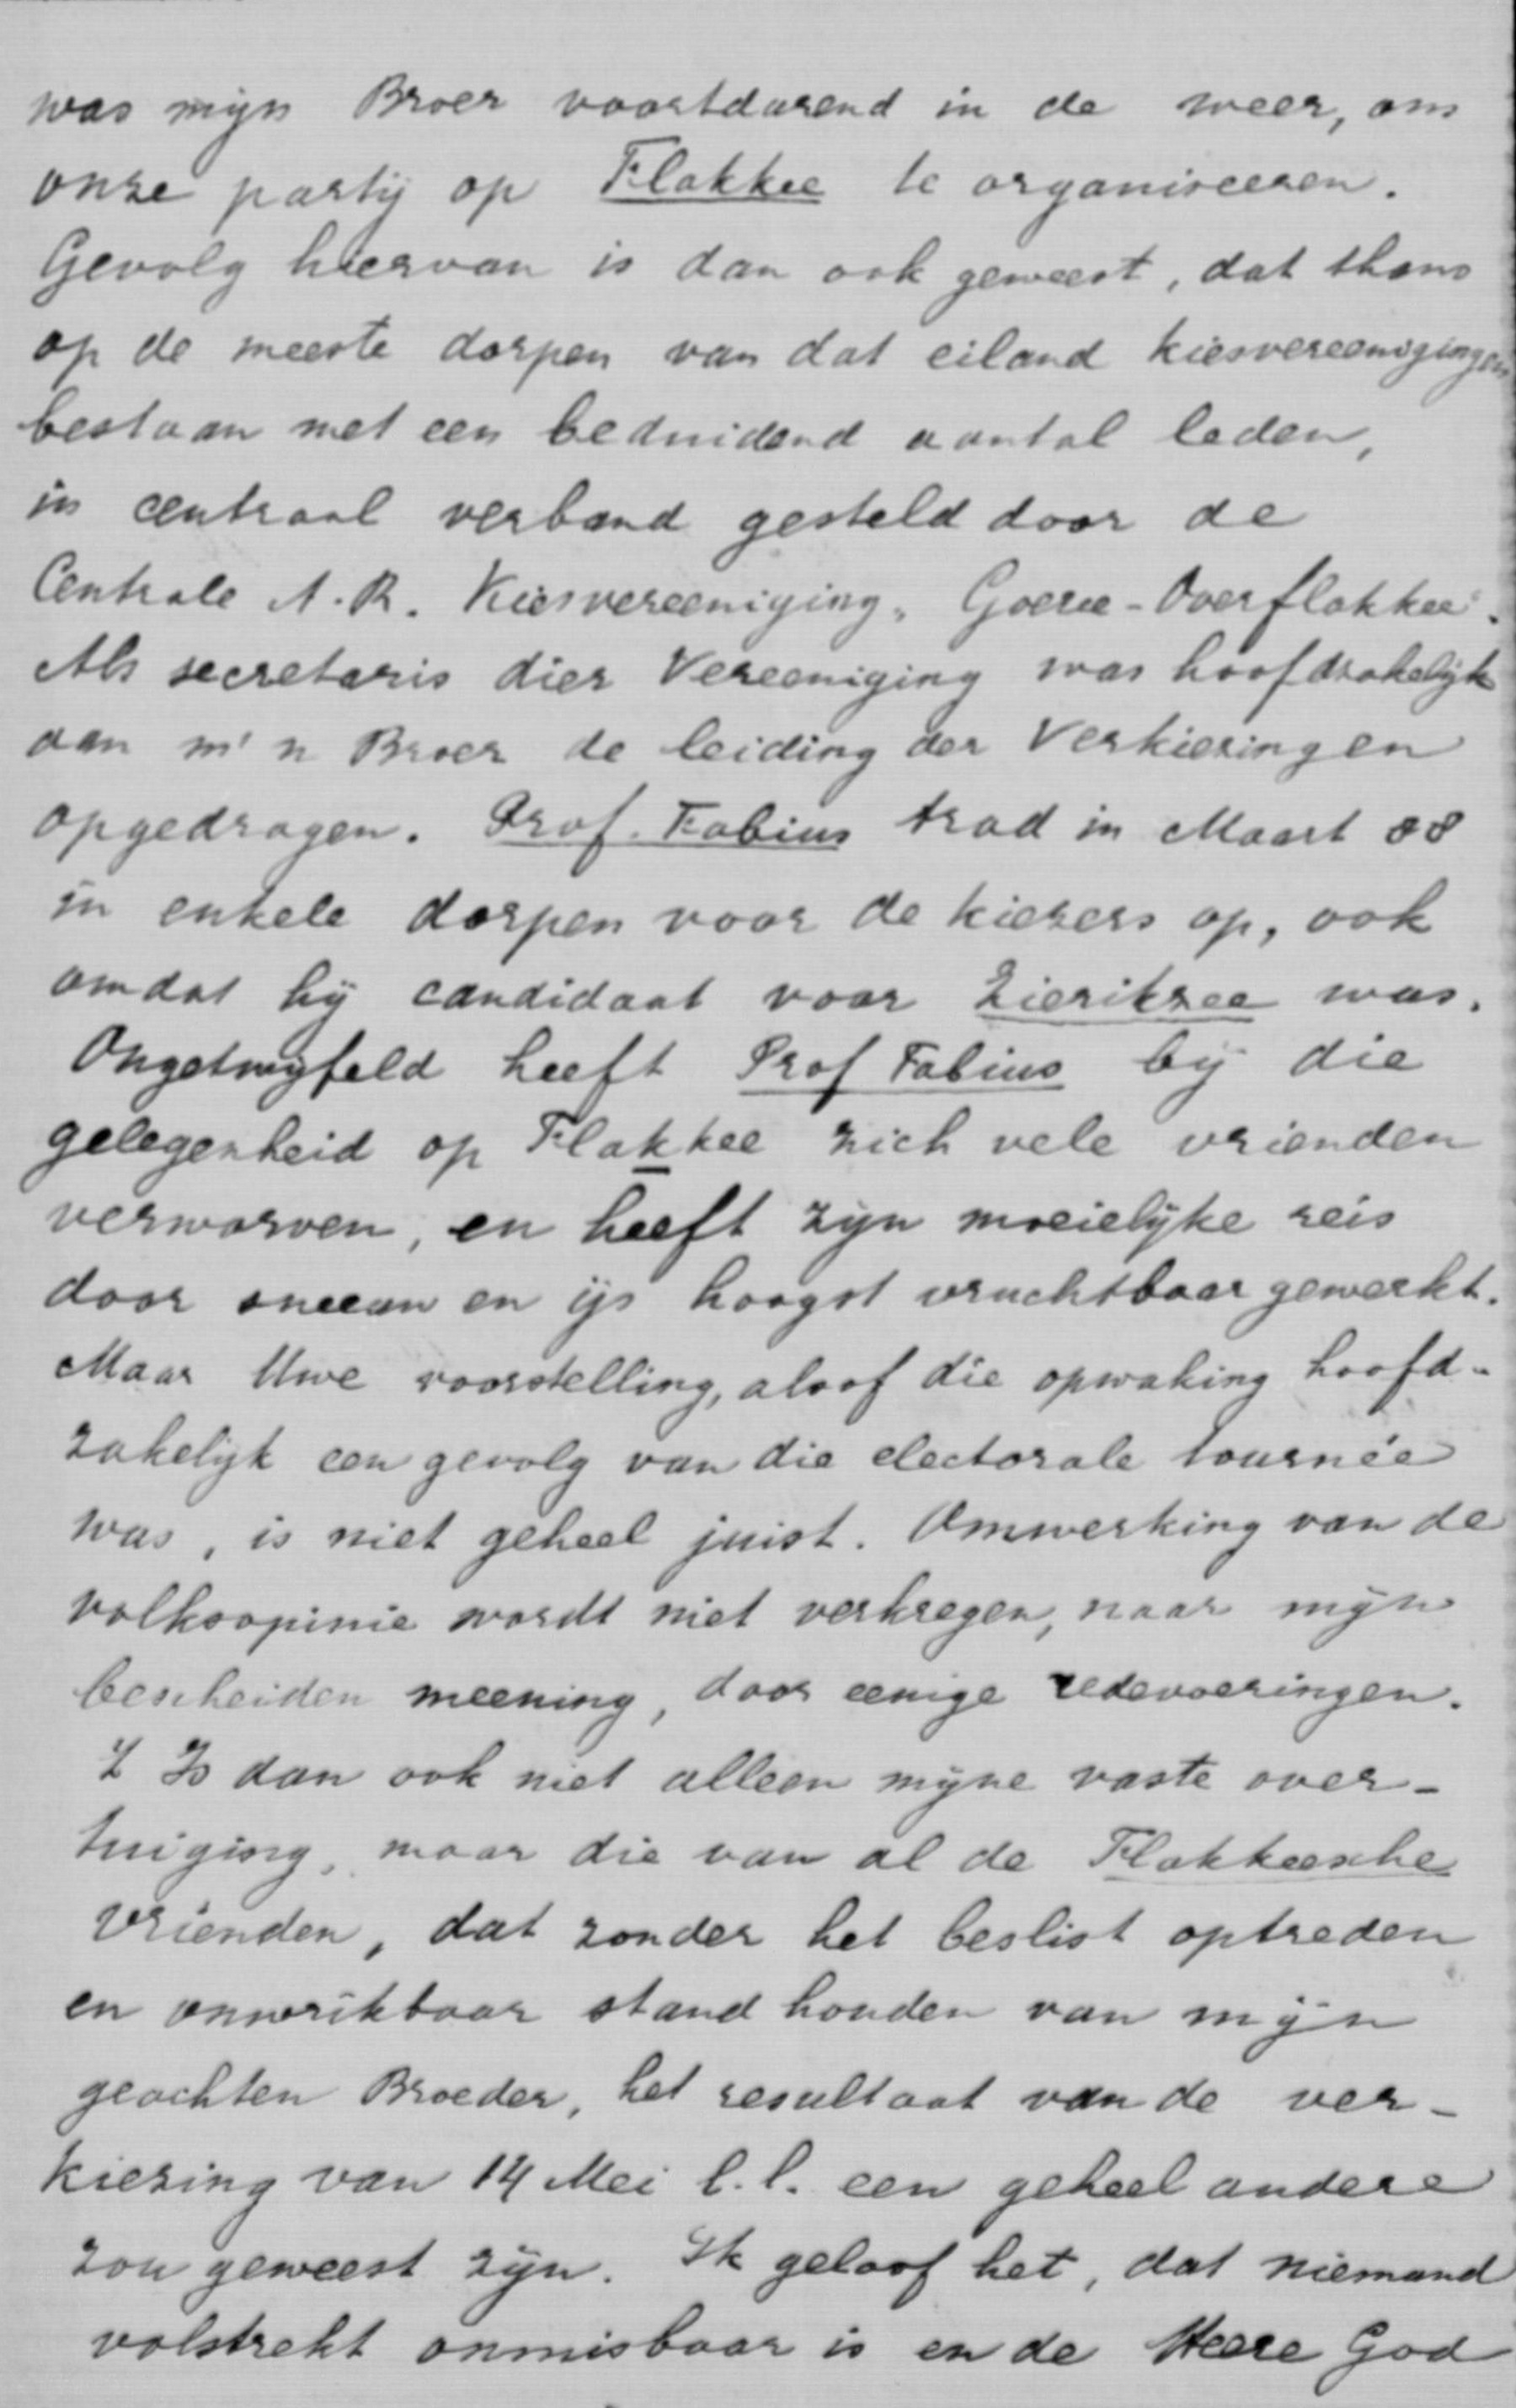 was mijn Broer voortdurend in de weer, om
onze partij op Flakkee te organiseeren.
Gevolg hiervan is dan ook geweest, dat thans
op de meeste dorpen van dat eiland kiesvereenigingen
bestaan met een beduidend aantal leden,
in centraal verband gesteld door de
Centrale A.R. Kiesvereeniging „Goeree-Overflakkee".
Als secretaris dier Vereeniging was hoofdzakelijk
aan m'n Broer de leiding der Verkiezingen
opgedragen. Prof. Fabius trad in Maart 88
in enkele dorpen voor de kiezers op, ook
omdat hij candidaat voor Zierikzee was.
Ongetwijfeld heeft Prof Fabius bij die
gelegenheid op Flakkee zich vele vrienden
verworven, en heeft zijn moeielijke reis
door sneeuw en ijs hoogst vruchtbaar gewerkt.
Maar Uwe voorstelling, alsof die opwaking hoofd-
zakelijk een gevolg van die electorale tournée
was, is niet geheel juist. Omwerking van de
volksopinie wordt niet verkregen, naar mijn
bescheiden meening, door eenige redevoeringen.
't Is dan ook niet alleen mijne vaste over-
tuiging, maar die van al de Flakkeesche
vrienden, dat zonder het beslist optreden
en onwrikbaar stand houden van mijn
geachten Broeder, het resultaat van de ver-
kiezing van 14 Mei l.l. een geheel andere
zou geweest zijn. Ik geloof het, dat niemand
volstrekt onmisbaar is en de Heere God